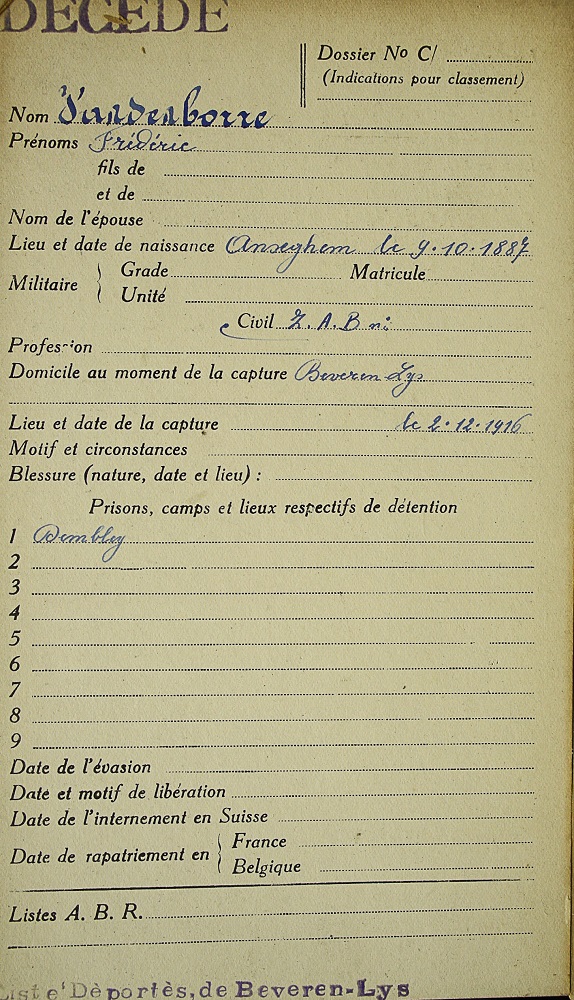 DECEDE
Dossier No C/
(Indications pour classement)
Nom Vandenborre
Prénoms Frédéric
fils de
et de
Nom de l'épouse
Lieu et date de naissance Anseghem le 9.10.1887
Militaire { Grade Matricule
Unité
Civil Z.A.B n:
Profession
Domicile au moment de la capture Beveren Lys
Lieu et date de la capture le 2.12.1916
Motif et circonstances
Blessure (nature, date et lieu) :
Prisons, camps et lieux respectifs de détention
1 Dembley
2
3
4
5
6
7
8
9
Date de l'évasion
Date et motif de libération
Date de l'internement en Suisse
Date de rapatriement en { France
Belgique
Listes A. B. R.
Liste' Dèportès,de Beveren-Lys